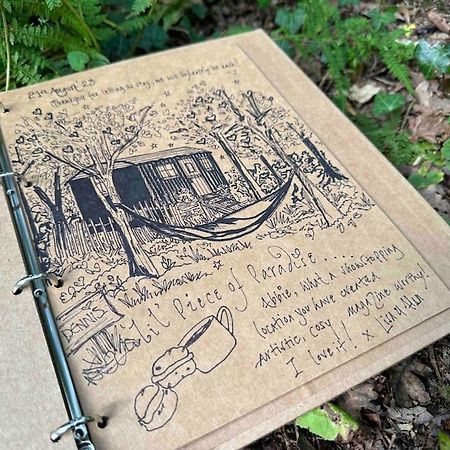 21st August 23
Thankyou for letting us stay, we will definitely be back!
DENNIS
Lil' piece of Paradise...
Abbie, what a showstopping
location you have created
Artistic, cosy magazine worthy!
I love it! x